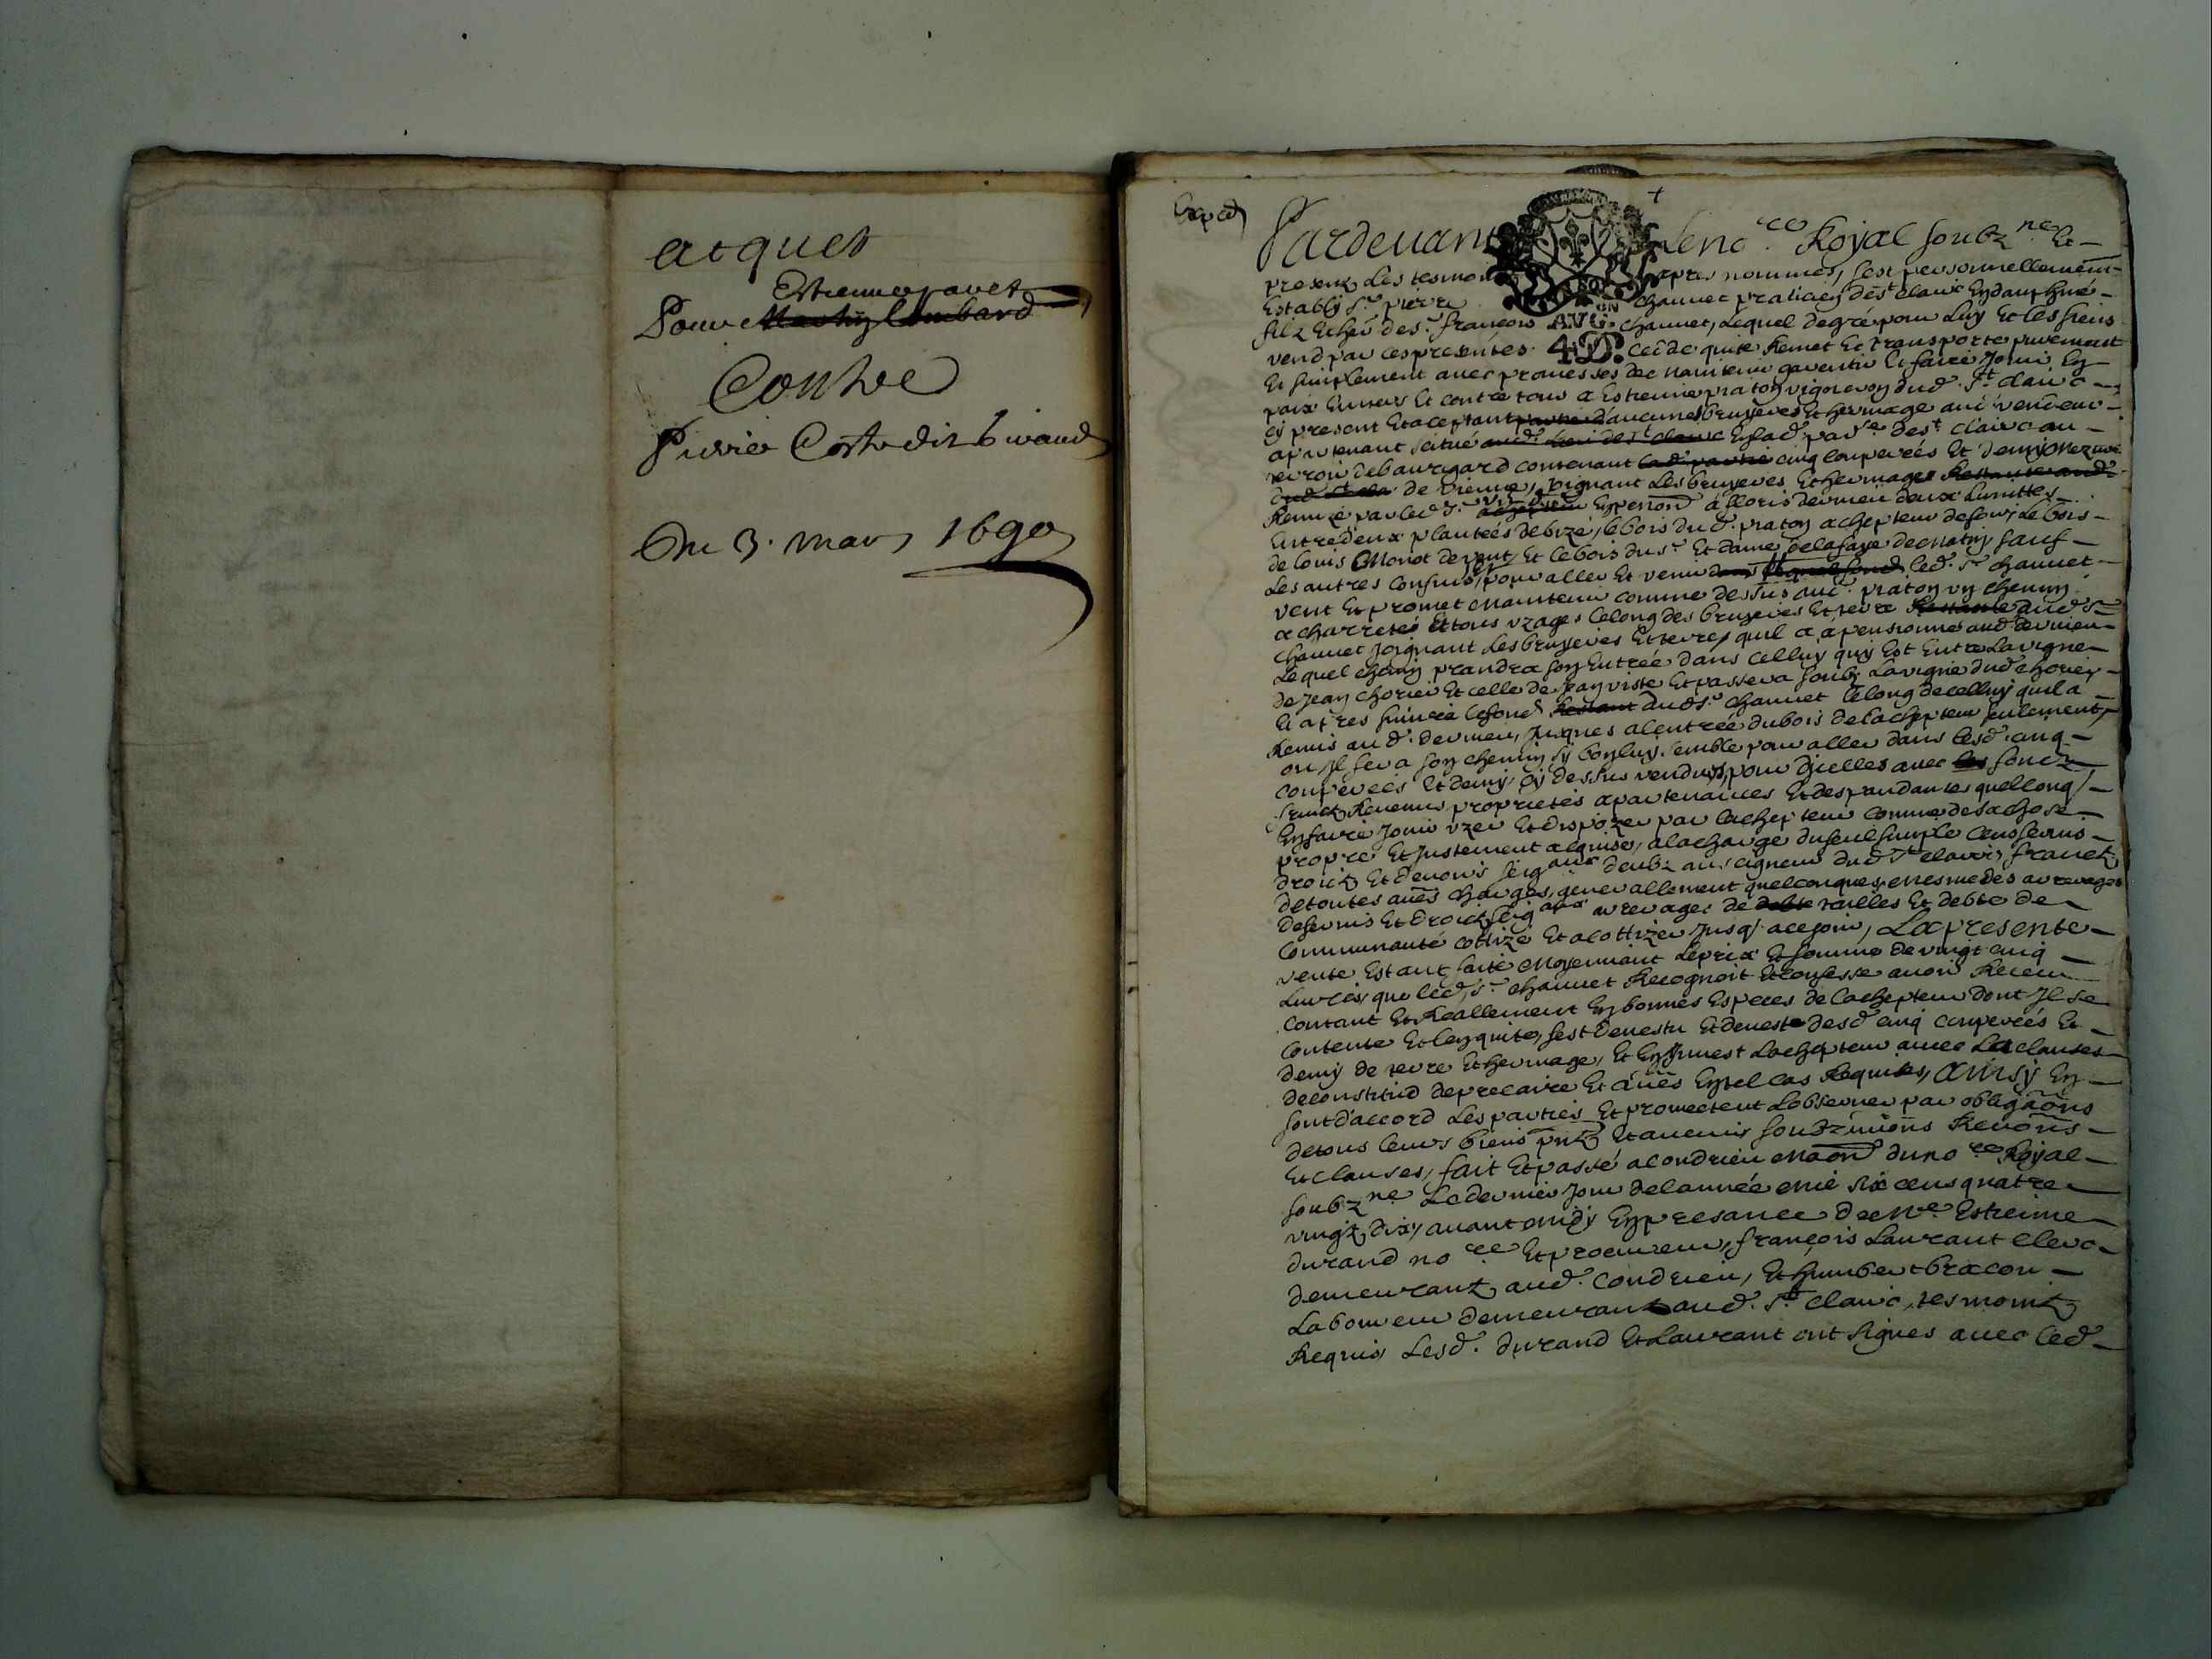 acquet
Estienne javet
Pour Mathy Lombard
Contre
Pierre Coste dit bivaud
Du 3. mars 1690
Exped
Pardevant le no.re Royal soubz.ne Et
presentz les tesmoins apres nommés, sest personnellement
Establÿ S.r pierre chauuet praticien de S.t clair En dauphiné
filz Et her des.r françois AVG. chauuet, Lequel de gré pour Luy Et les siens
vend par ces presentes 4D. cede quite Remet Et transporte purement
Et simplement avec promesses de maintenir garentir Et faire Jouir En
paix Envers Et contre tous a Estienne praton vigneron dud. S.t clair
cy present Et aceptant bruyeres Et hermage aud. vendeur
apartenant scitué En lad. par.se de S.t clair au
terroir de baurigard contenant cinq couperées Et demy mezure
de vienne, joignant Les bruyeres Et hermages
Remize par led. s.r En pension a dernieu deux Limittes
Entre deux plantées de bize, le bois dud. praton achepteur de soir, Le bois
de Louis Monot de vent, Et le bois du s.r Et dame delafaye de matin sauf
Les autres confins, pour aller Et venir led. s.r chauuet
vent Et promet maintenir comme dessus aud. praton un chemin
a charrete Et tous uzages le long des bruyeres Et terre aud. s.r
chauuet joignant Les bruyeres Et terres quil a apensionné aud. dernieu
Lequel chemin prandra son Entrée dans celluy quy Est Entre La vigne
de Jean chorier Et celle de Jean viste Et passera soubz La vigne dud. chorier
Et apres suivra le fond aud. s.r chauuet le long de celluy quil a
Remis aud. dernieu, jusques a lentrée du bois de lachepteur seulement
ou Jl fera son chemin sy bon luy semble pour aller dans lesd. cinq
couperées Et demy cy dessus vendues, pour dicelles avec fondz
fruictz Revenus proprietés apartenances Et despandantes quelconq
En faire Jouir uzer Et dispozer par lachepteur comme de sa chose
propre Et Justement acquise, a la charge du seul simple cens servis
droictz Et devoirs seig.aux deubz au seigneur dud. S.t clair, francz
de toutes aues charges generallement quelconques, mesme des arreragés
de servis Et droictz seig.aux arrerages de tailles Et debte de
Communauté cottizé Et a cottizer Jusq. a ce jour, La presente
vente Estant faite Moyennant Le prix Et somme de vingt cinq
Livres que led. s.r chauuet Recognoit Et confesse avoir Receu
contant Et Reallement En bonnes Especes de lachepteur dont Jl se
contente Et len quite, sest devestu Et devest desd. cinq couperées Et
demy de terre Et hermage, Et En Jnvest Lachepteur avec Les clauses
de constitud de precaire Et aues En tel cas Requises, Ainsÿ En
sont d'accord Les parties Et promettent Lobserver par obligaons
de tous leurs biens pntz Et avenir soubzmions Renons
Et clauses, fait Et passé a condrieu maon du no.re Royal
soubz.ne Le dernier Jour de lannée mil six cens quatre
vingtz dix, avant midÿ En presance de M.e Estienne
durand no.re Et procureur, françois Laurant clerc
demeurantz aud. condrieu, Et humbert bracon
Laboureur demeurant aud. S.t clair, tesmointz
Requis Lesd. durand Et Laurant ont signes avec led.